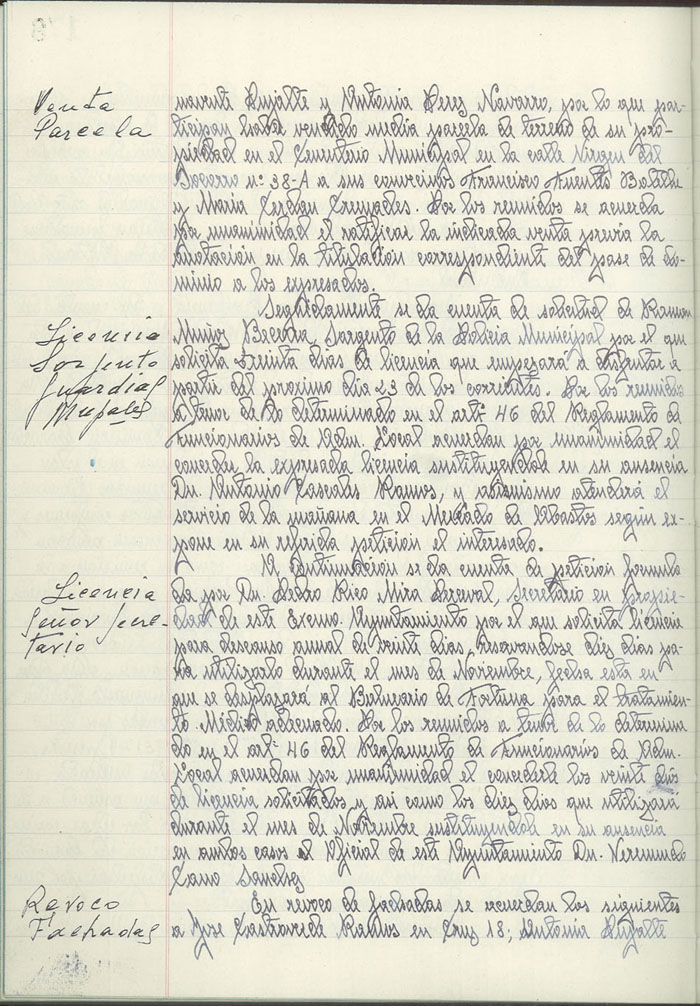 Venta
Parcela
navente Rufalte y Antonia Perez Navarro, por lo que par-
ticipan haber vendido media parcela de terreno de su pro-
piedad en el Cementerio Municipal en la calle Virgen del
Socorro nº 38-A a sus convecinos Francisco Fuentes Batlle
y Maria Cerdan Cremades. Por los reunidos se acuerda
por unanimidad el ratificar la indicada venta previa la
anotación en la titulación correspondiente del pase de do-
minio a los expresados.
Seguidamente se da cuenta de solicitud de Ramon
Licencia
Sargento
Guardias
Mupales
Muñoz Becerra, Sargento de la Policia Municipal por el que
solicita treinta dias de licencia que empezara a disfrutar a
partir del proximo dia 23 de los corrientes. Por los reunidos
a tenor de lo determinado en el artº 46 del Reglamento de
Funcionarios de Adm. Local acuerdan por unanimidad el
conceder la expresada licencia sustituyendole en su ausencia
Dn. Antonio Cascales Ramos, y asimismo atenderá el
servicio de la mañana en el Mercado de Abastos según ex-
pone en su referida peticion el interesado.
A continuacion se da cuenta de peticion formula
Licencia
Señor Secre-
tario
da por Dn. Pedro Rico Mira Perceval, Secretario en propie-
dad de este Excmo. Ayuntamiento por el que solicita licencia
para descanso anual de veinte dias, reservandose diez dias pa-
ra utilizarlo durante el mes de Noviembre, fecha esta en
que se desplazará al Balneario de Fortuna para el tratamien-
to Médico adecuado. Por los reunidos a tenor de lo determina
do en el artº 46 del Reglamento de Funcionarios de Adm.
Local acuerdan por unanimidad el concederle los veinte dias
de licencia solicitados y asi como los diez dias que utilizará
durante el mes de Noviembre sustituyendole en su ausencia
en ambos casos el Oficial de este Ayuntamiento Dn. Veremundo
Cano Sanchez
Revoco
Fachadas
En revoco de fachadas se acuerdan los siguientes
a Jose Castroverde Ramos en Cruz 18; Antonia Rufalte